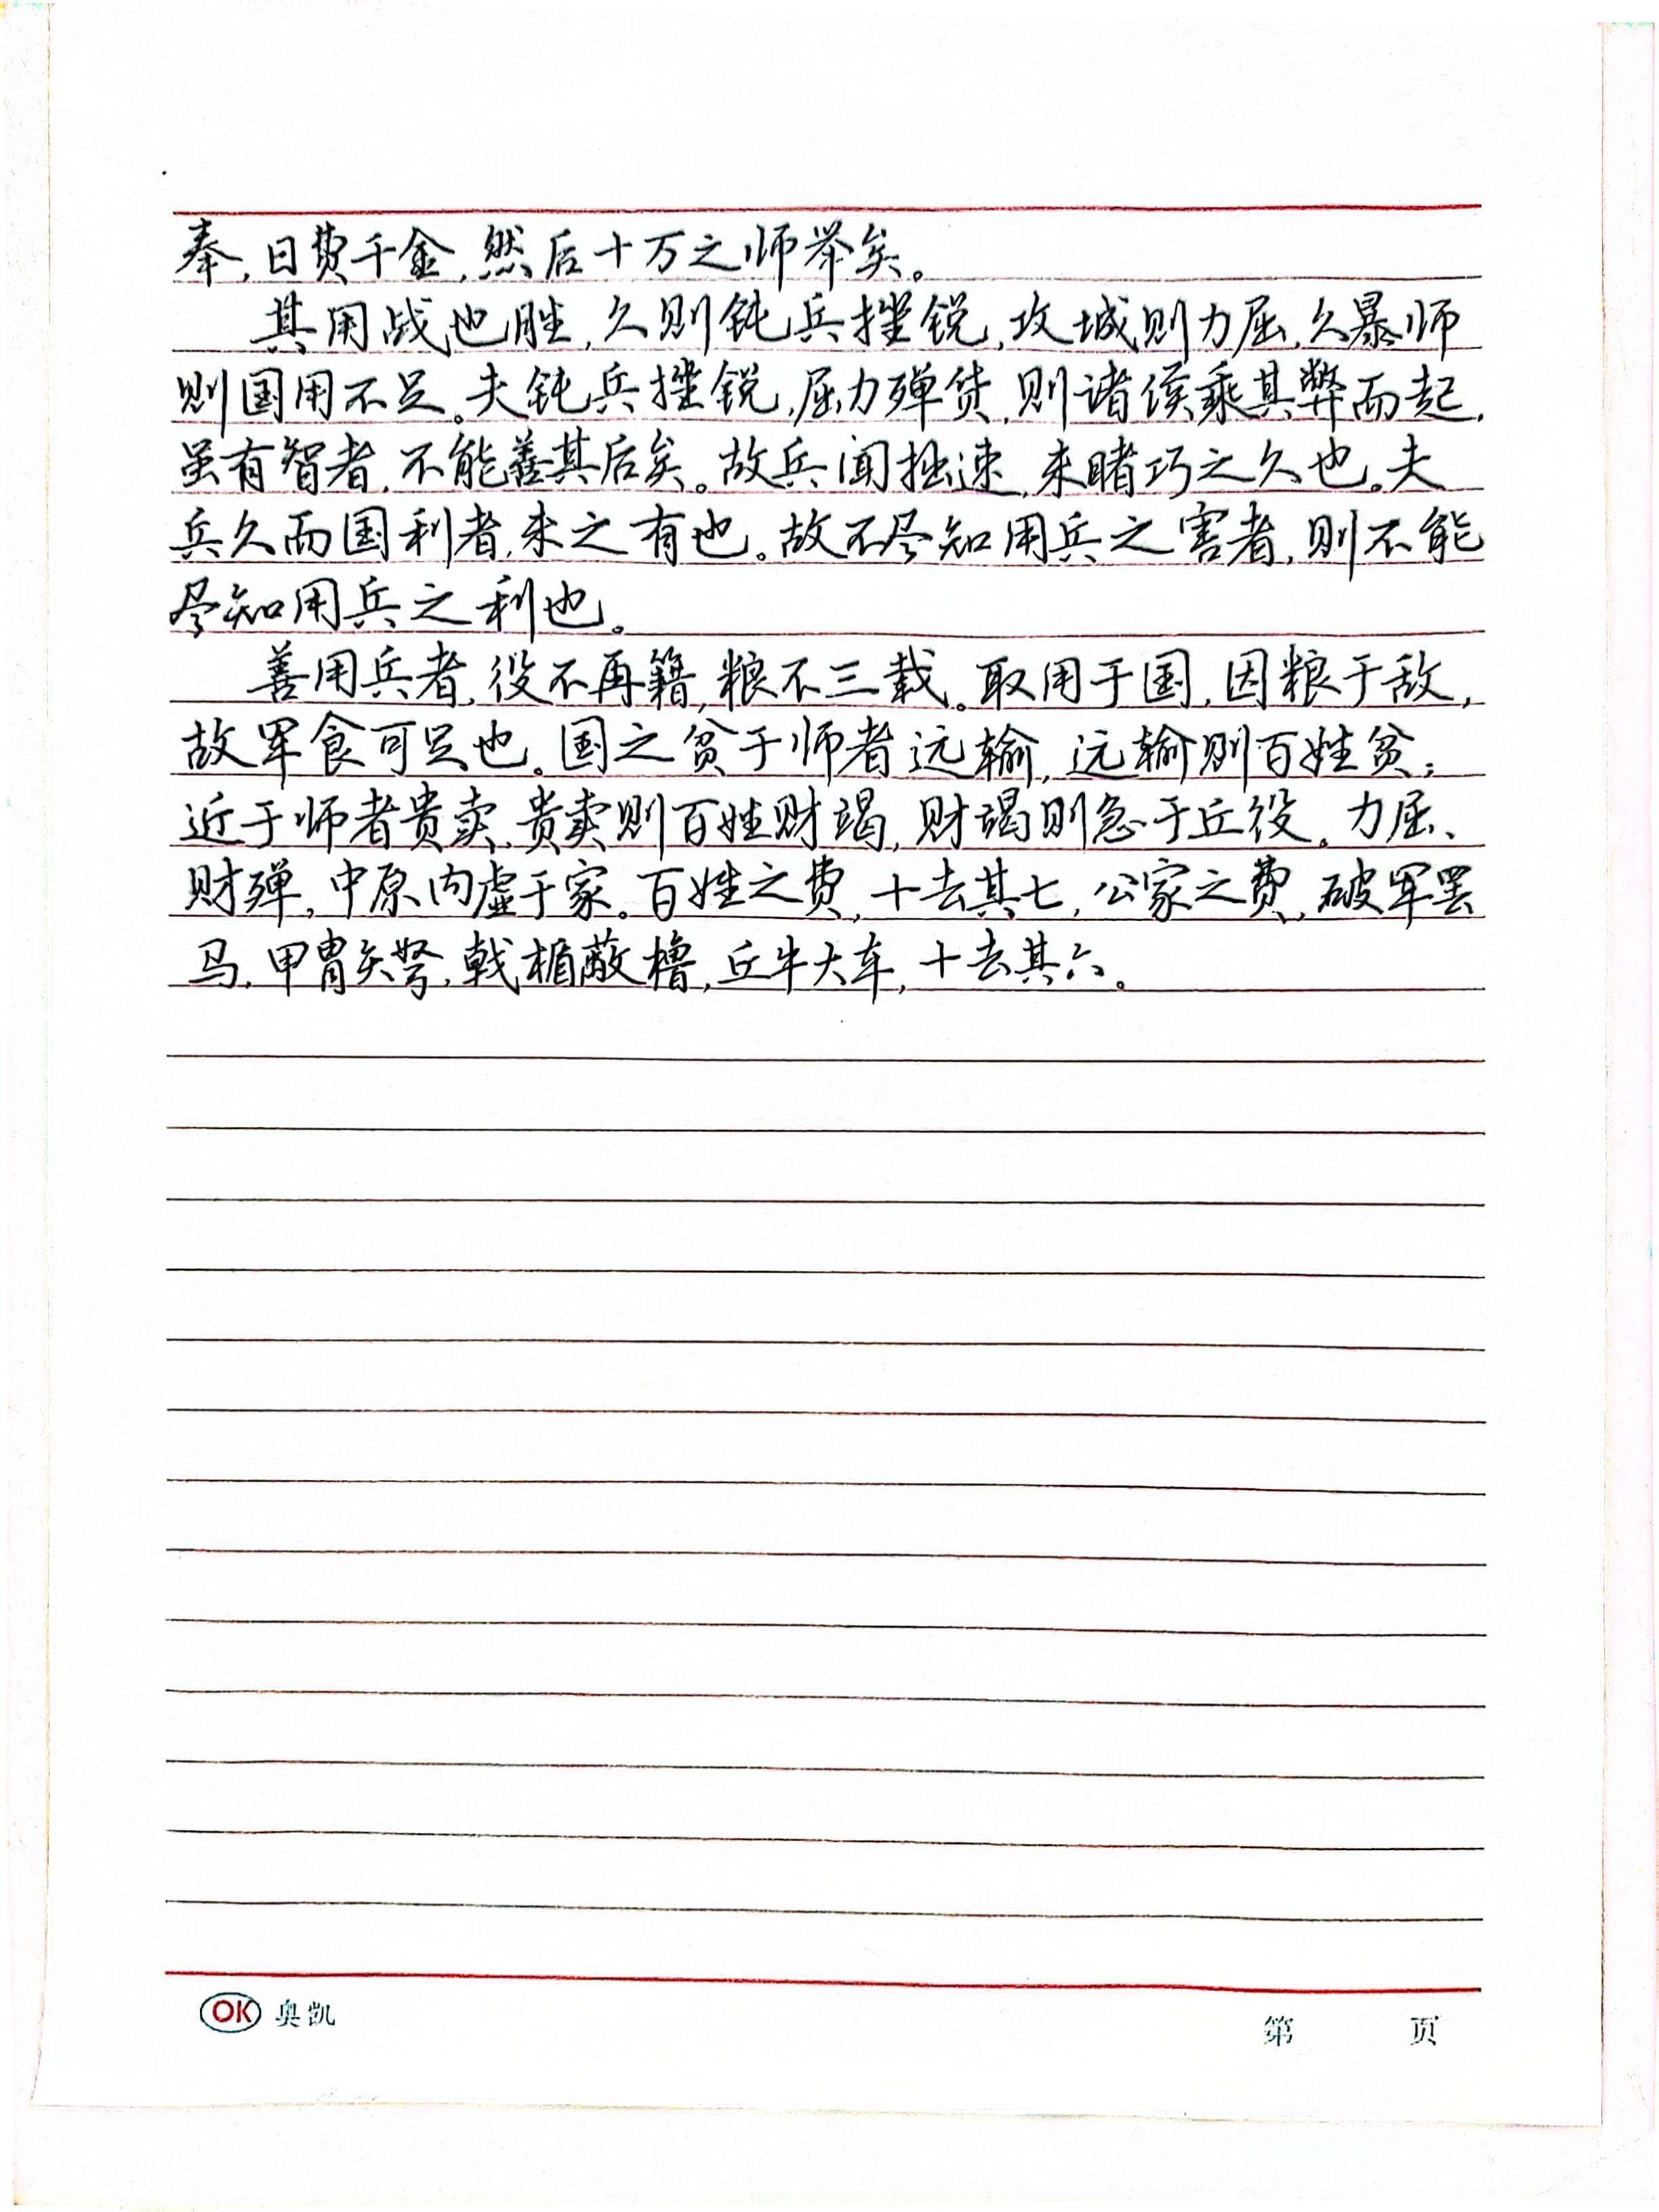 奉,日费千金,然后十万之师举矣。
其用战也胜,久则钝兵挫锐,攻城则力屈,久暴师
则国用不足。夫钝兵挫锐,屈力殚货,则诸侯乘其弊而起,
虽有智者,不能善其后矣。故兵闻拙速,未睹巧之久也。夫
兵久而国利者,未之有也。故不尽知用兵之害者,则不能
尽知用兵之利也。
善用兵者,役不再籍,粮不三载。取用于国,因粮于敌,
故军食可足也。国之贫于师者远输,远输则百姓贫;
近于师者贵卖,贵卖则百姓财竭,财竭则急于丘役。力屈、
财殚,中原内虚于家。百姓之费,十去其七,公家之费,破军罢
马,甲胄矢弩,戟楯蔽橹,丘牛大车,十去其六。
OK 奥凯
第 页